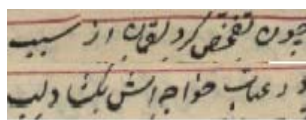 چون تفحص کرد لقمان از سبب
در عتاب خواجه‌اش بگشاد لب